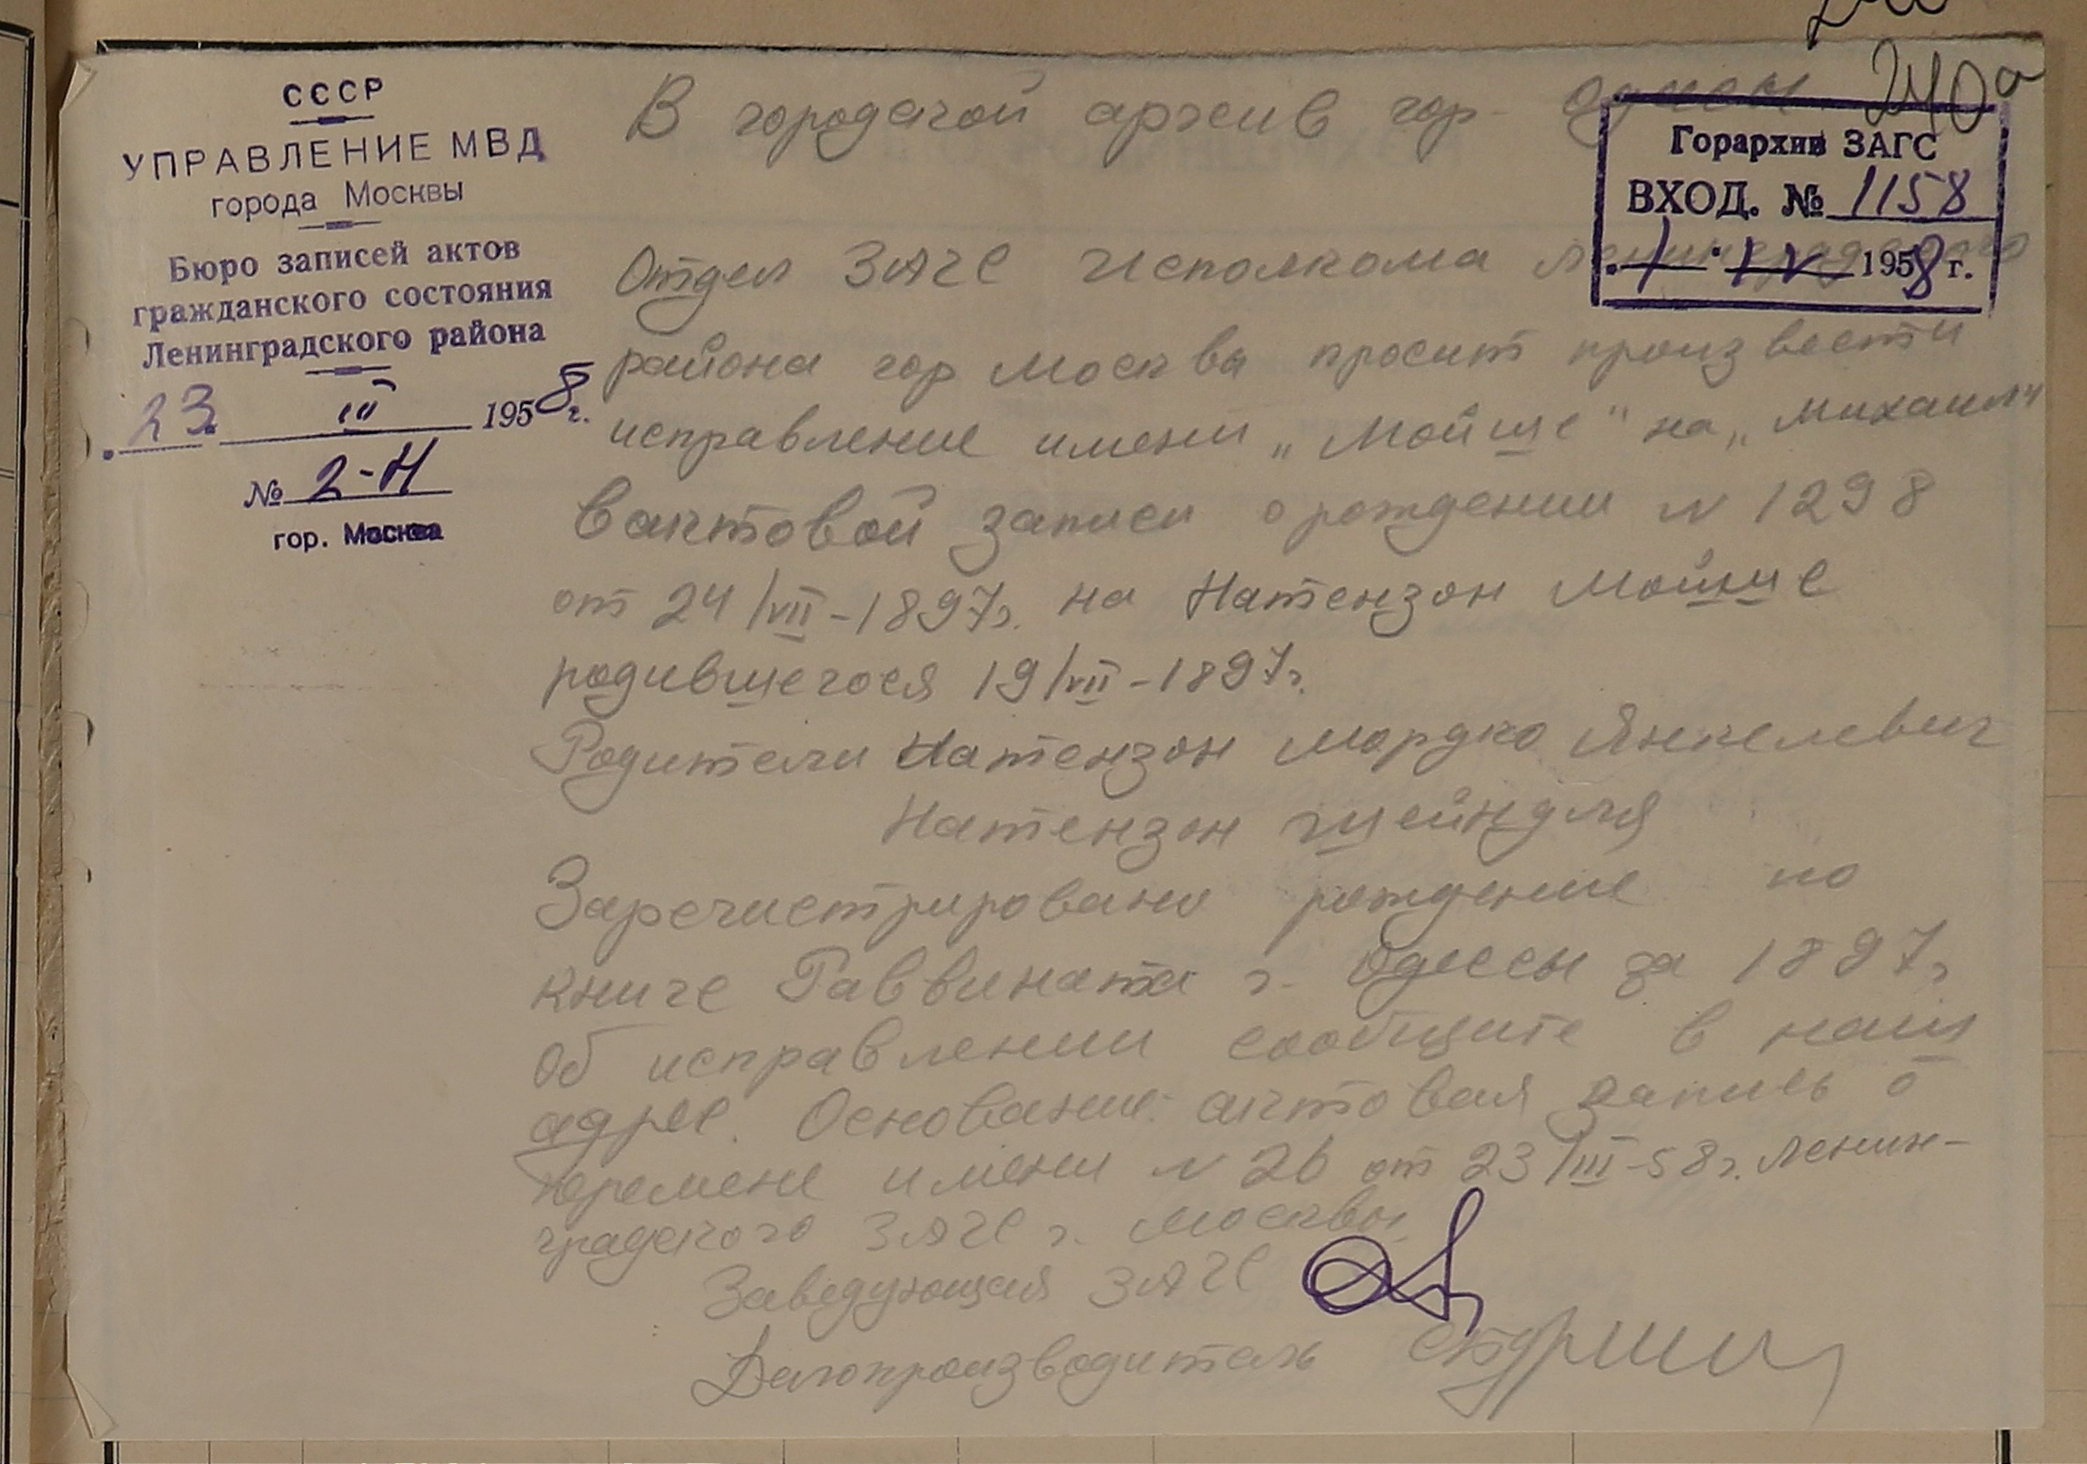 СССР
УПРАВЛЕНИЕ МВД
города Москвы
Бюро записей актов
гражданского состояния
Ленинградского района
23. III 1958 г.
№ 2-Н
гор. Москва
240а
Горархив ЗАГС
ВХОД. № 1158
1 IV 1958 г.
В городской архив гор. Одессы
Отдел ЗАГС Исполкома Ленинградского
района гор Москвы просит произвести
исправление имени „Мойше" на „Михаил"
в актовой записи о рождении N 1298
от 24/VII-1897г. на Натензон Мойше
родившегося 19/VII-1897г.
Родители Натензон Мордко Янкелевич
Натензон Шейндля
Зарегистрировано рождение по
книге Раввината г. Одессы за 1897г
Об исправлении сообщите в наш
адрес. Основание: актовая запись о
перемене имени N 26 от 23/III-58г. Ленин-
градского ЗАГС г. Москвы
Заведующая ЗАГС
Делопроизводитель